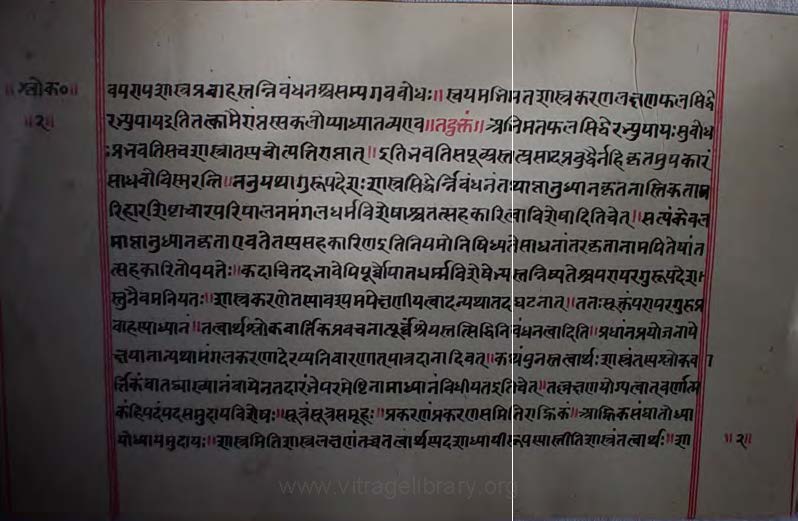 ॥श्लोक०॥
॥२॥
वपरापरशास्त्रप्रवाहस्तन्निबंधनश्चसम्यगवबोधः॥स्वयमभिमतशास्त्रकरणलक्षणफलसिद्धे
रभ्युपायइतितत्कामैराप्तस्सकलोप्याध्यातव्यएव॥तदुक्तं॥अभिमतफलसिद्धेरभ्युपायःसुबोध
ःप्रभवतिसचशास्त्रात्तस्यचोत्पत्तिराप्तात्॥इतिभवतिसपूज्यस्तत्प्रसादप्रबुद्धैर्नहिकृतमुपकारं
साधवोविस्मरन्ति॥ननुयथागुरूपदेशःशास्त्रसिद्धेर्न्निबंधनंतथाप्तानुध्यानकृतनास्तिकताप
रिहारशिष्टाचारपरिपालनमंगलधर्मविशेषाश्चतत्सहकारित्वाविशेषादितिचेत्॥सत्यंकेवल
माप्तानुध्यानकृताएवतेतस्यसहकारिणइतिनियमोनिषिध्यतेसाधनांतरकृतानामपितेषांत
त्सहकारितोपपत्तेः॥कदाचित्तदभावेपिपूर्वोपात्तधर्म्मविशेषेभ्यस्तन्निष्पत्तेश्चपरापरगुरूपदेश
स्तुनैवमनियतः॥शास्त्रकरणेतस्यावश्यमपेक्षणीयत्वादन्यथातदघटनात्॥ततःसूक्तंपरापरगुरुप्र
वाहस्याध्यानं॥तत्वार्थश्लोकवार्त्तिकप्रवचनात्पूर्वंश्रेयस्तत्सिद्धिनिबंधनत्वादिति॥प्रधानप्रयोजनापे
क्षयानान्यथामंगलकरणादेरप्यनिवारणात्पात्रदानादिवत्॥कथंपुनस्तत्वार्थःशास्त्रंतस्यश्लोकवा
र्त्तिकंवातद्व्याख्यानंवायेनतदारंभेपरमेष्टिनामाध्यानंविधीयतइतिचेत्॥तल्लक्षणयोग्यत्वात्वर्णात्म
कंहिपदंपदसमुदायविशेषः॥सूत्रंसूत्रसमूहः॥प्रकरणंप्रकरणसमितिराह्निकं॥आह्निकसंघातोध्या
योध्यायसमुदायः॥शास्त्रमितिशास्त्रलक्षणंतच्चतत्वार्थस्यदशाध्यायीरूपस्यास्तीतिशास्त्रंतत्वार्थः॥शा
॥२॥
www.vitragelibrary.org